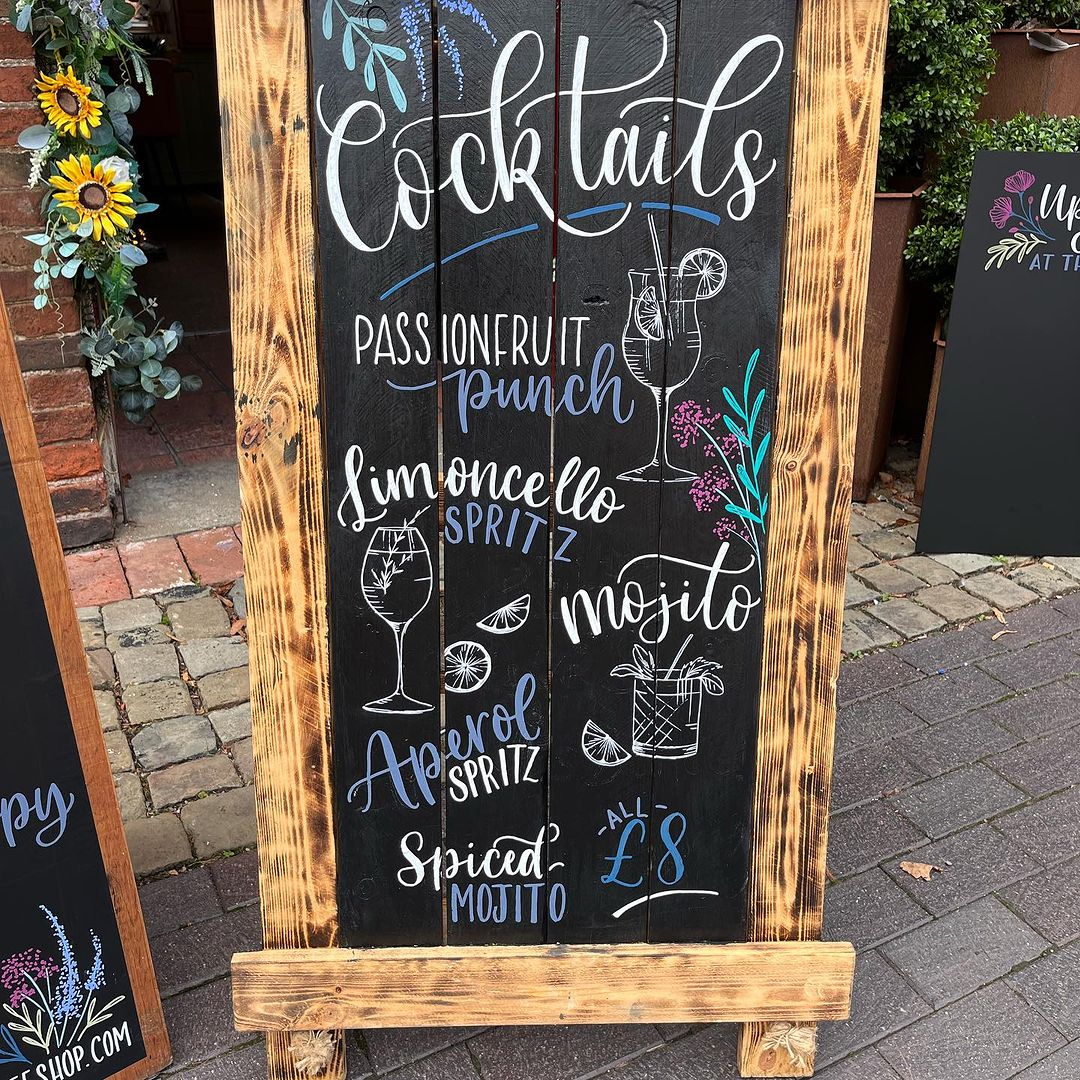 Cocktails
PASSIONFRUIT
punch
Limoncello
SPRITZ
mojito
Aperol
SPRITZ
Spiced
MOJITO
-ALL-
£8